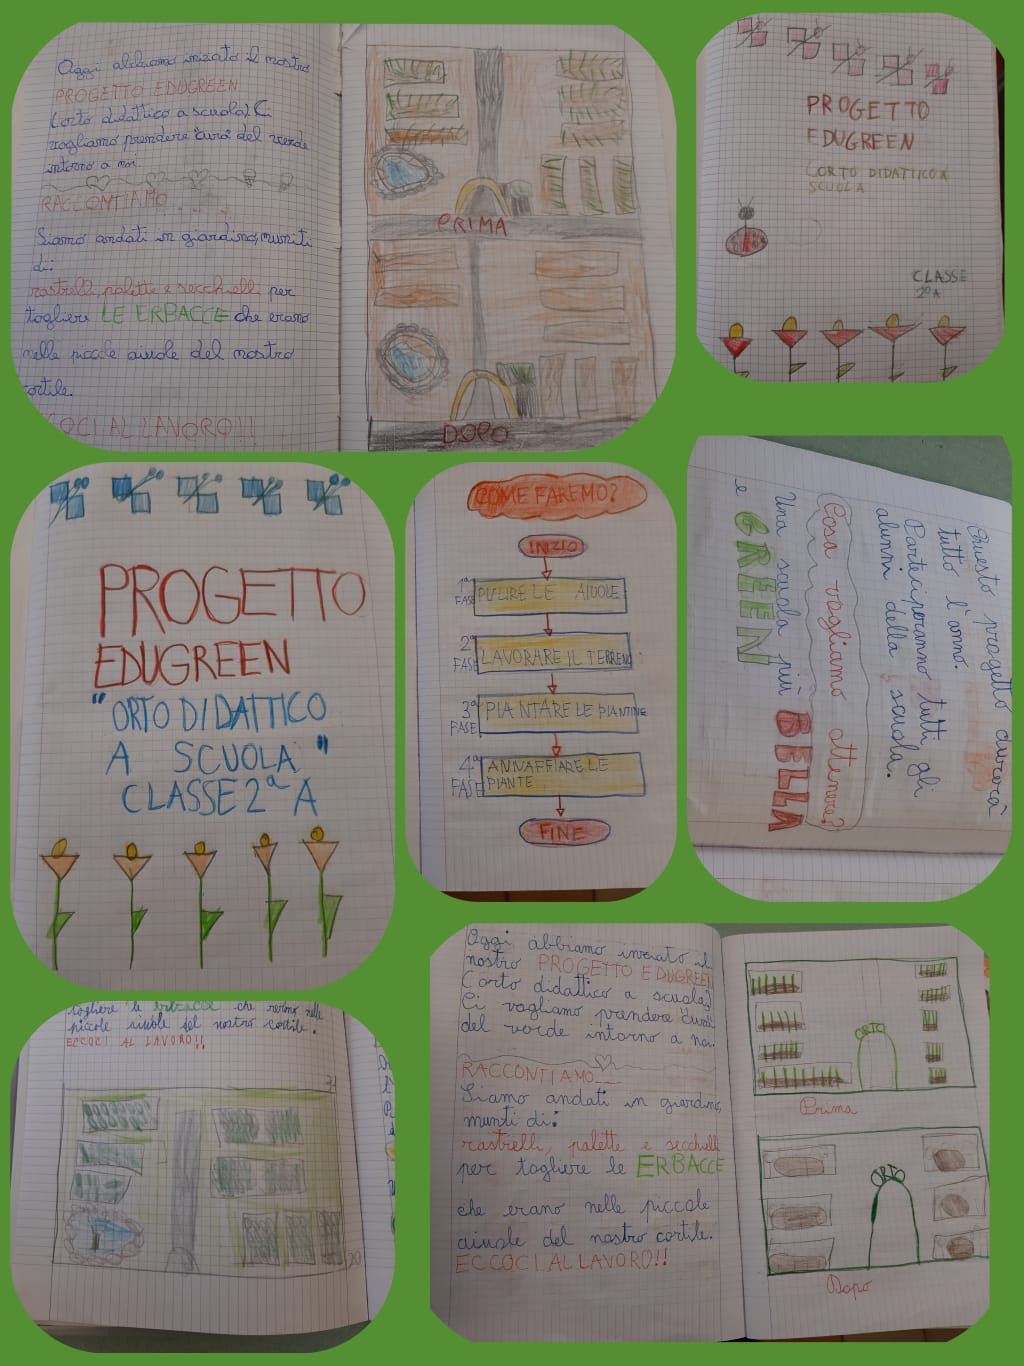 Oggi abbiamo iniziato il nostro
PROGETTO EDUGREEN
(orto didattico a scuola) Ci
vogliamo prendere "cura" del verde
intorno a noi.
RACCONTIAMO...
Siamo andati in giardino, muniti
di:
rastrelli, palette e secchielli per
togliere LE ERBACCE che erano
nelle piccole aiuole del nostro
cortile.
ECCOCI AL LAVORO!!
PRIMA
DOPO
PROGETTO
EDUGREEN
(ORTO DIDATTICO A
SCUOLA
CLASSE
2ª A
PROGETTO
EDUGREEN
"ORTO DIDATTICO
A SCUOLA"
CLASSE 2ª A
COME FAREMO?
INIZIO
1ª FASE
PULIRE LE AIUOLE
2ª FASE
LAVORARE IL TERRENO
3ª FASE
PIANTARE LE PIANTINE
4ª FASE
ANNAFFIARE LE
PIANTE
FINE
Questo progetto durerà
tutto l'anno.
Parteciperanno tutti gli
alunni della scuola.
Cosa vogliamo ottenere?
Una scuola più BELLA
e GREEN
togliere le ERBACCE che
piccole aiuole del nostro cortile.
ECCOCI AL LAVORO!!
Oggi abbiamo iniziato il
nostro PROGETTO EDUGREEN
(orto didattico a scuola)
Ci vogliamo prendere "cura"
del verde intorno a noi.
RACCONTIAMO...
Siamo andati in giardino,
muniti di:
rastrelli, palette e secchielli
per togliere le ERBACCE
che erano nelle piccole
aiuole del nostro cortile.
ECCOCI AL LAVORO!!
ORTO
Prima
ORTO
Dopo